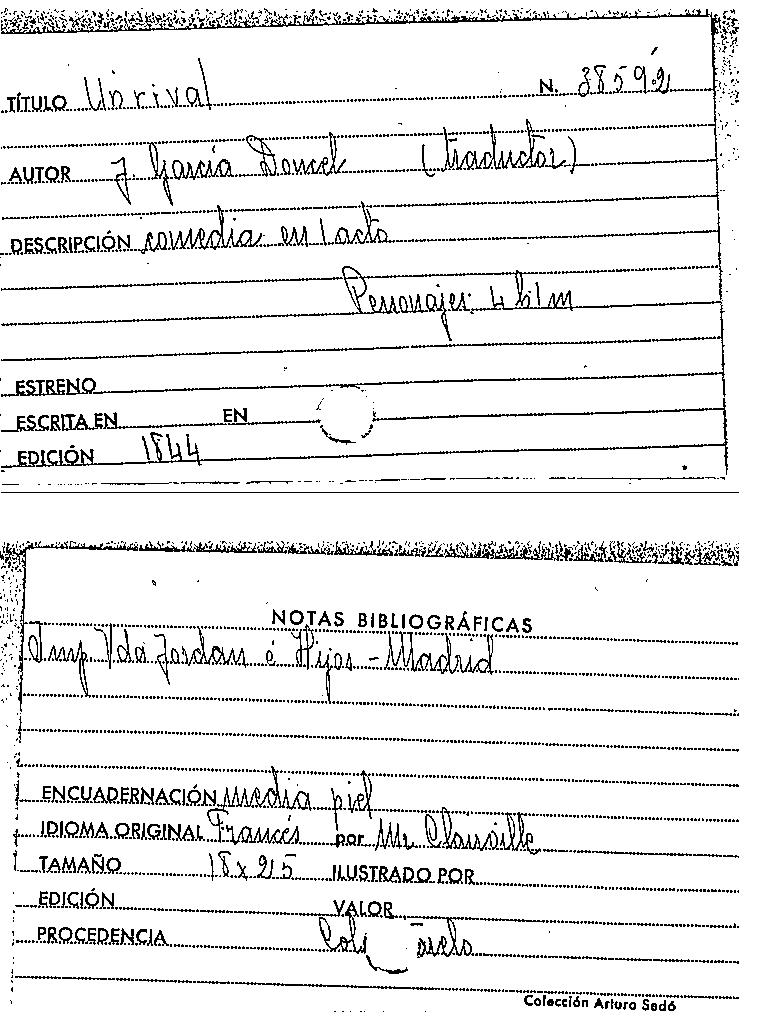 TÍTULO Un rival N. 38592
AUTOR J. García Doncel (traductor)
DESCRIPCIÓN comedia en 1 acto
Personajes: 4 h 1 m
ESTRENO
ESCRITA EN EN
EDICIÓN 1844
NOTAS BIBLIOGRÁFICAS
Imp. Vda Jordan é Hijos - Madrid
ENCUADERNACIÓN media piel
IDIOMA ORIGINAL Francés por Mr Clairville
TAMAÑO 18 x 25 ILUSTRADO POR
EDICIÓN VALOR
PROCEDENCIA
Colección Arturo Sedó